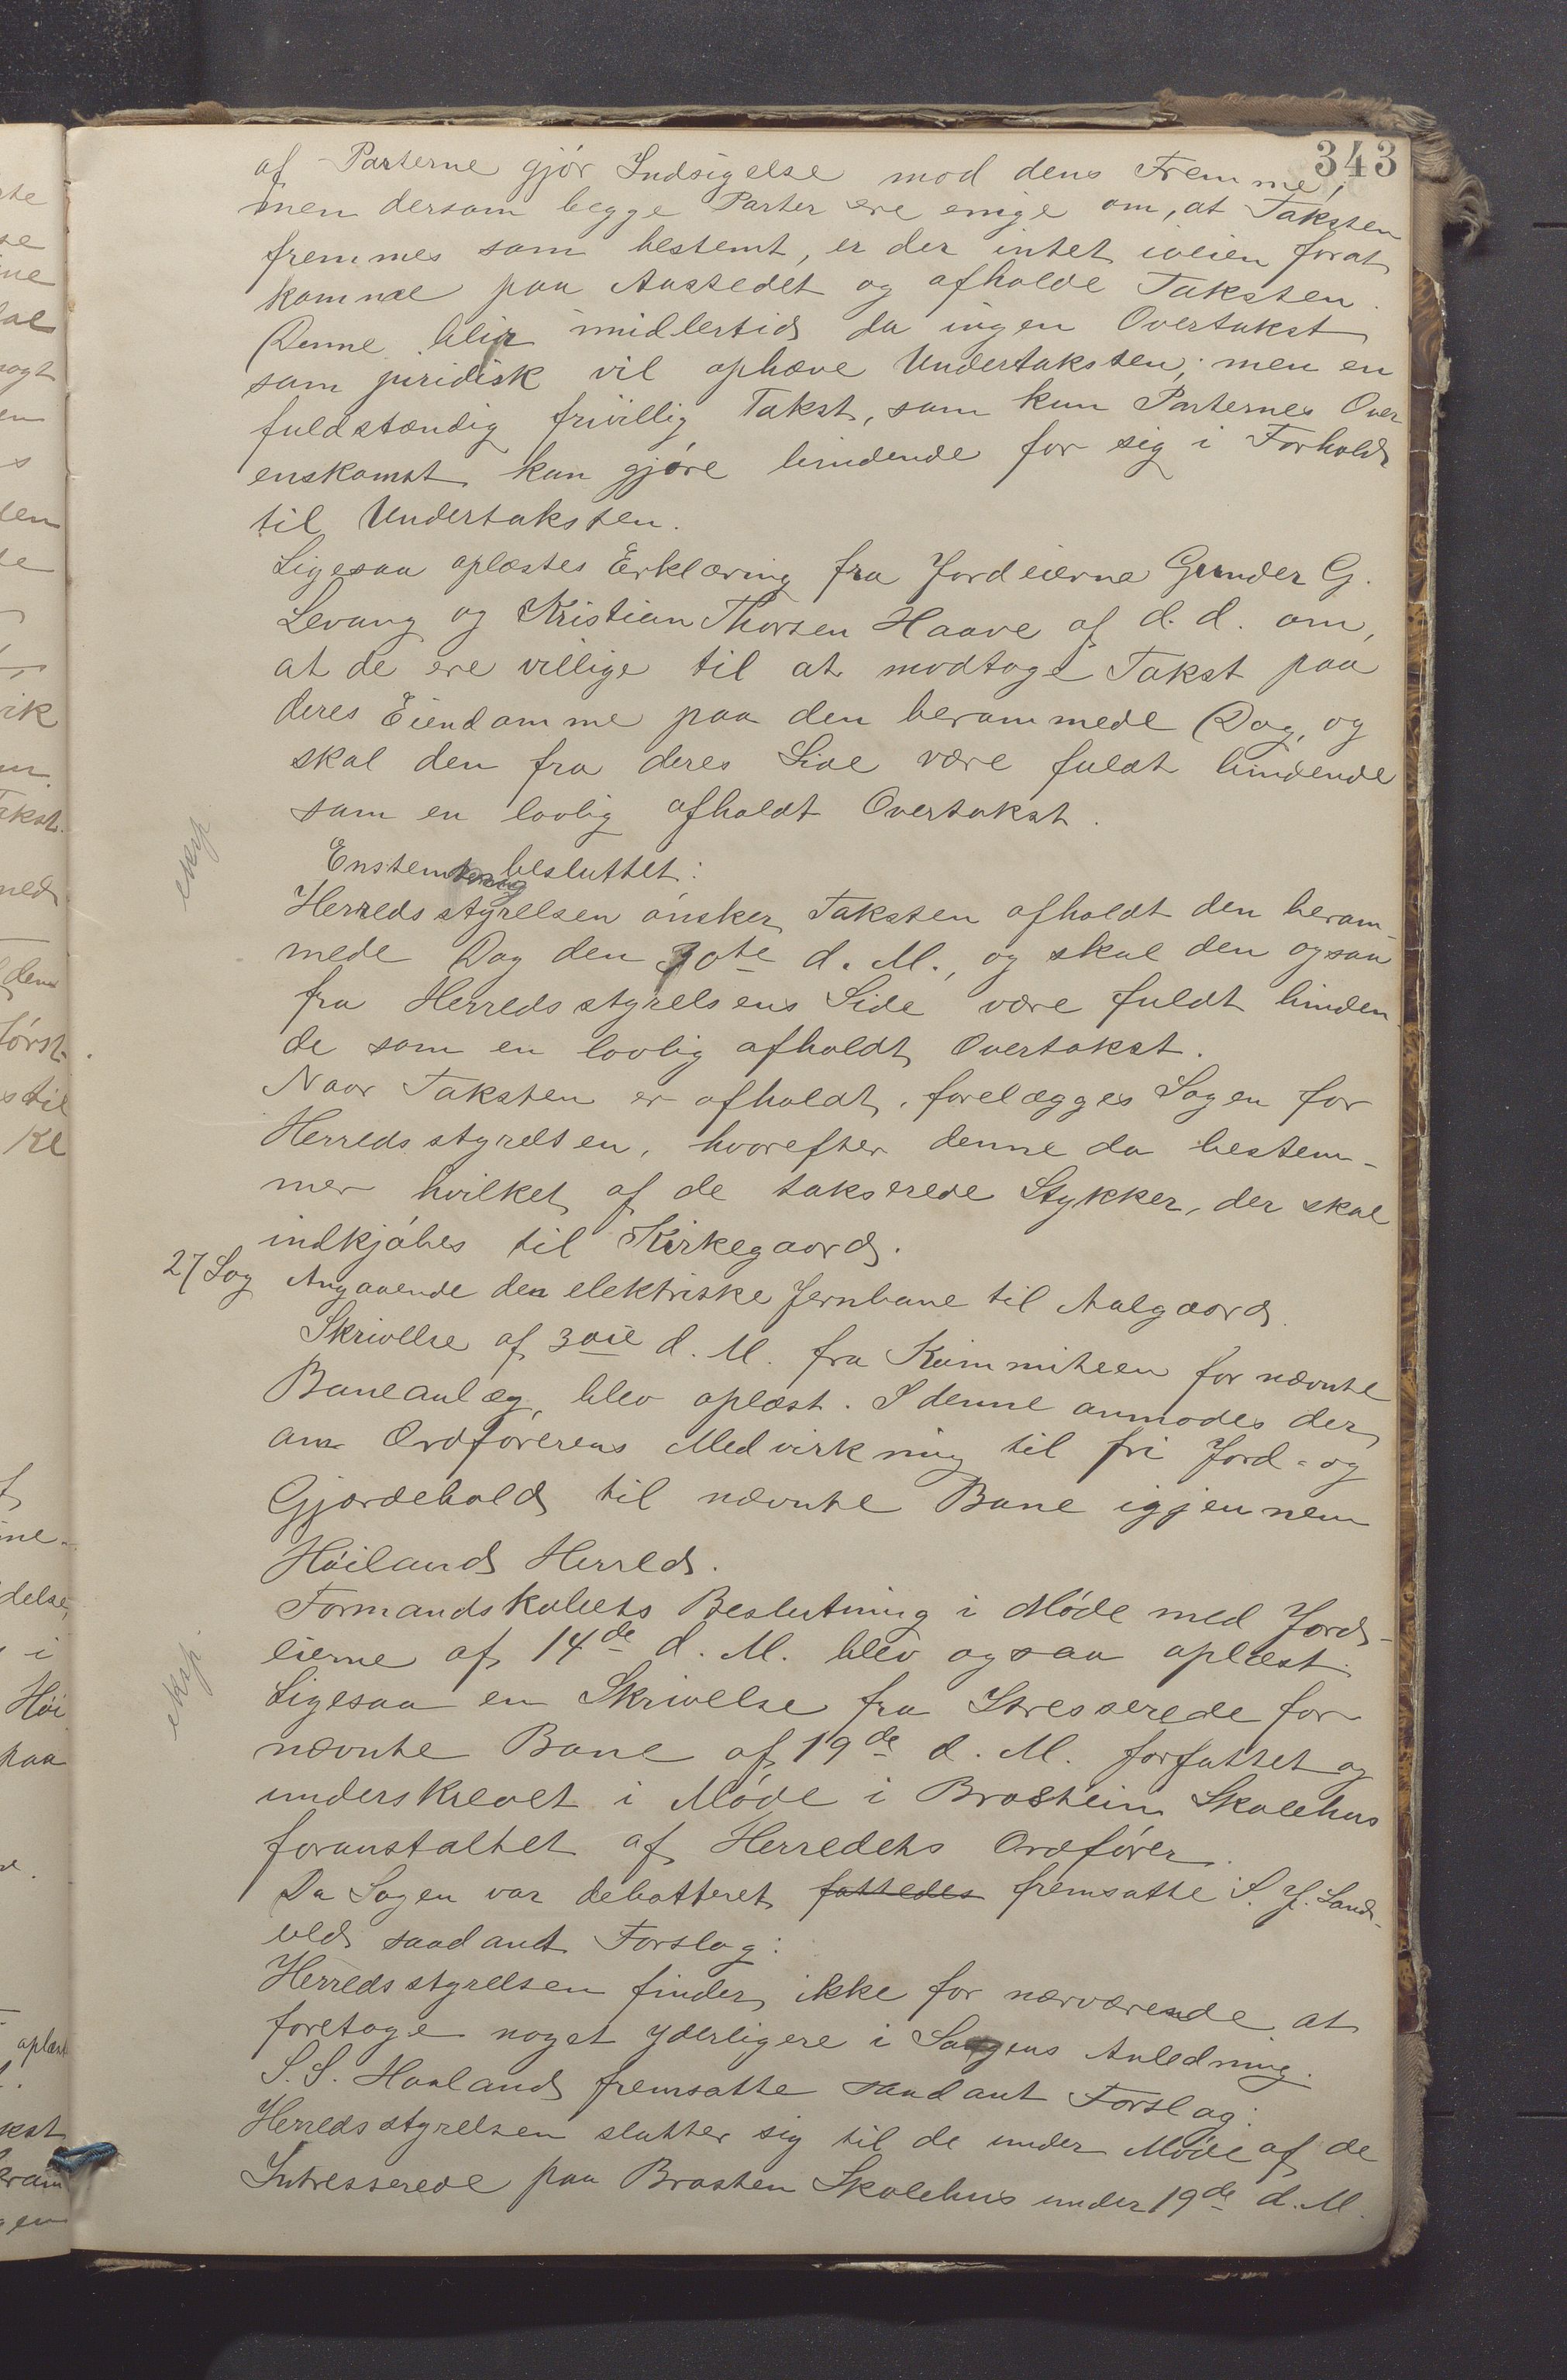 343
af Parterne gjør Indsigelse mod dens Fremme,
men dersom begge Parter ere enige om, at Taksten
fremmes som bestemt, er der intet iveien forat
komme paa Aastedet og afholde Taksten.
Denne blir imidlertid da ingen Overtakst
som juridisk vil ophæve Undertaksten, men en
fuldstændig frivillig Takst, som kun Parternes Over
enskomst kan gjøre bindende for sig i Forhold
til Undertaksten.
Ligesaa oplæstes Erklæring fra Jordeierne Gunder G.
Levang og Kristian Thorsen Haave af d. d. om,
at de ere villige til at modtage Takst paa
deres Eiendomme paa den berammede Dag, og
skal den fra deres Side være fuldt bindende
som en lovlig afholdt Overtakst.
eksp
Enstemmig besluttet:
Herredsstyrelsen ønsker Taksten afholdt den beram-
mede Dag den 30te d. M., og skal den ogsaa
fra Herredsstyrelsens Side være fuldt binden-
de som en lovlig afholdt Overtakst.
Naar Taksten er afholdt, forelægges Sagen for
Herredsstyrelsen, hvorefter denne da bestem-
mer hvilket af de takserede Stykker, der skal
indkjøbes til Kirkegaard.
27 Sag Angaaende den elektriske Jernbane til Aalgaard.
Skrivelse af 3die d. M. fra Kommiteen for nævnte
Baneanlæg, blev oplæst. I denne anmodes der
om Ordførerens Medvirkning til fri Jord- og
Gjærdehold til nævnte Bane igjennem
Høilands Herred.
Formandskabets Beslutning i Møde med Jord-
eierne af 14de d. M. blev ogsaa oplæst.
eksp.
Ligesaa en Skrivelse fra Itresserede for
nævnte Bane af 19de d. M. forfattet og
underskrevet i Møde i Brostein Skolehus
foranstaltet af Herredets Ordfører.
Da Sagen var debatteret fattedes fremsatte S. J. Sand-
ved saadant Forslag:
Herredsstyrelsen finder ikke for nærværende at
foretage noget yderligere i Sagens Anledning.
S. S. Haaland fremsatte saadant Forslag:
Herredsstyrelsen slutter sig til de under Møde af de
Intresserede paa Brosten Skolehus under 19de d. M.